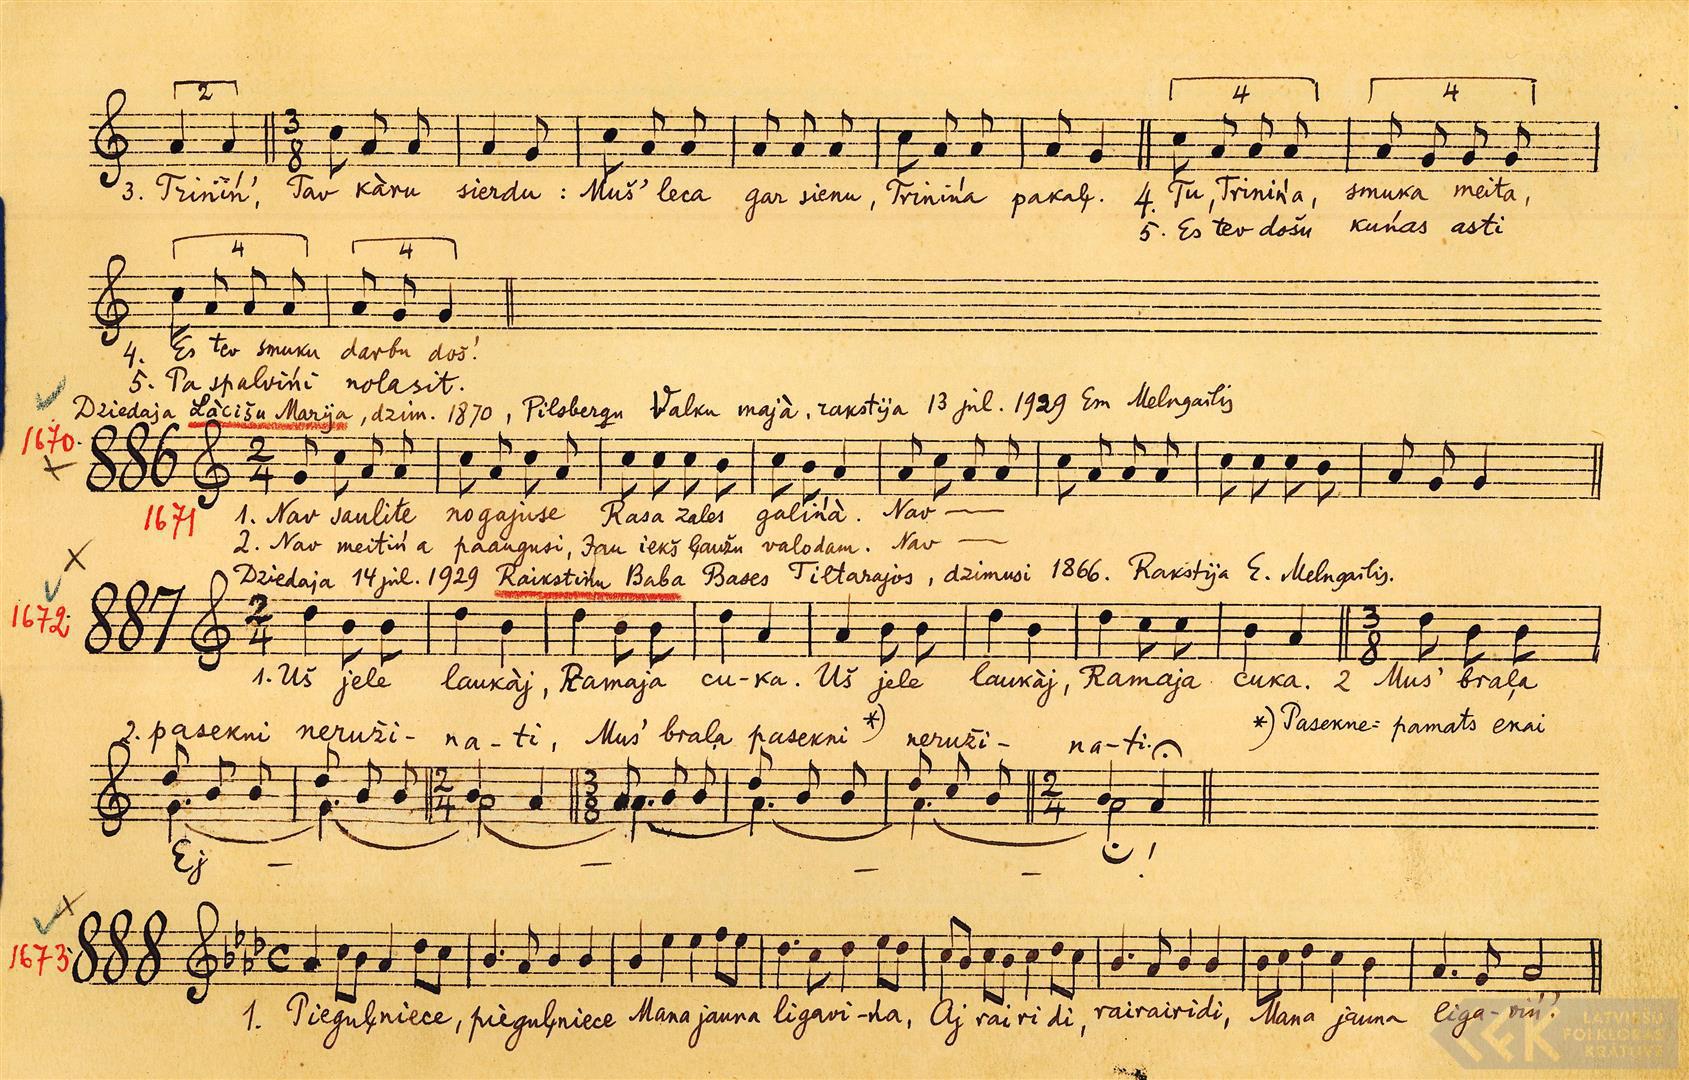 2
3
8
4
4
3. Triniń', Tav kàru sierdu : Muš' leca gar sienu, Trinińa pakaļ. 4. Tu, Trinińa, smuka meita,
5. Es tev došu kuńas asti
4
4
4. Es tev smuku darbu doš'.
5. Pa spalvińi nolasit.
Dziedaja Làcišu Marija, dzim. 1870, Pilsbergu Valku majà, rakstija 13 jul. 1929 Em Melngailis
1670.
886 2 4
1671 1. Nav saulite nogajuse Rasa zales galińà. Nav —
2. Nav meitińa paaugusi, Jau iekš ļaužu valodam. Nav —
Dziedaja 14 jul. 1929 Raikstiņu Baba Bases Tiltarajos, dzimusi 1866. Rakstija E. Melngailis.
1672.
887 2 4 3 8
1. Uš jele laukàj, Ramaja cu-ka. Uš jele laukàj, Ramaja cuka. 2 Mus' braļa
2. pasekni neruži-na-ti, Mus' braļa pasekni *) neruži-na-ti. *) Pasekne = pamats ekai
2 4 3 8 2 4
Ej — — — — !
1673.
888 C
1. Pieguļniece, pieguļniece Mana jauna ligavi-ńa, Aj rairidi, rairairidi, Mana jauna liga-viń'.
LFK LATVIEŠU FOLKLORAS KRĀTUVE